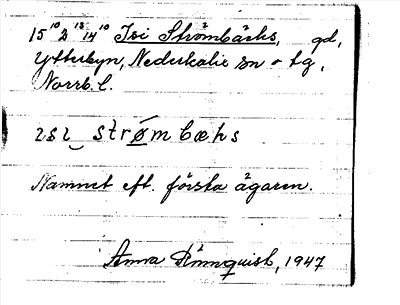 15¹⁰ 2¹² 14¹⁰ Isi Strömbäcks, gd,
Ytterbyn, Nederkalix sn o tg,
Norrb. l.
ɪsɪ‿ strømbæks
Namnet eft. första ägaren.
Anna Rönnquist, 1947